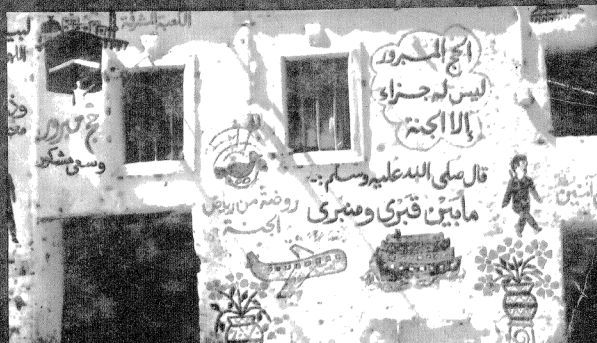 الكعبة المشرفة
حج مبرور
وسعى مشكور
الحج المبرور
ليس له جزاء
إلا الجنة
قال صلى الله عليه وسلم :
مابين قبرى ومنبرى
روضة من رياض
الجنة